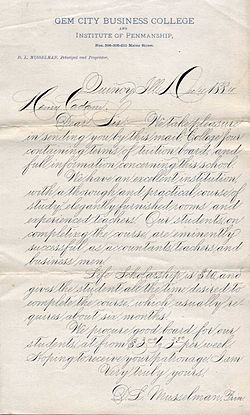 GEM CITY BUSINESS COLLEGE
AND
INSTITUTE OF PENMANSHIP,
Nos. 506-508-510 Maine Street.
D. L. MUSSELMAN, Principal and Proprietor.
Quincy, Ill.
Henry
Dear Sir: We take pleasure
in sending you by this mail College Jour
containing terms of tuition, board, and
full information concerning this school.
We have an excellent institution,
with a thorough and practical course of
study, elegantly furnished rooms and
experienced teachers. Our students, on
completing the course, are eminently
successful as accountants, teachers and
business men.
Life Scholarship is and
gives the student all the time desired to
complete the course, which usually re
quires about six months.
We procure good board for our
students, at from per week.
Hoping to receive your patronage, I am
Very truly yours,
D. L. Musselman, Prin